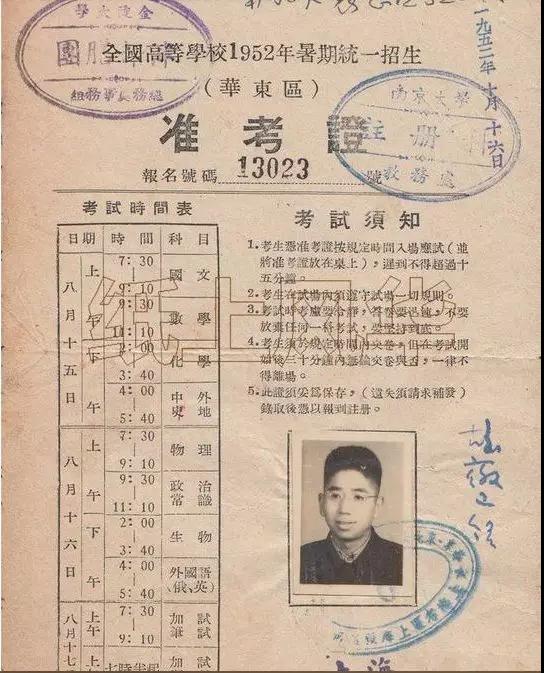 金陵大學
團
全國高等學校1952年暑期統一招生
(華東區)
准考證
報名號碼 13023 號
南京大學
註册
教務處
一九五二年十月十六日
考試時間表
日期 時間 科目
八月十五日
上午
7:30 9:10 國文
9:30 11:10 數學
下午
2:00 3:40 化學
4:00 5:40 中外史地
八月十六日
上午
7:30 9:10 物理
9:30 11:10 政治常識
下午
2:00 3:40 生物
4:00 5:40 外國語(俄、英)
八月十七
上午
7:30 9:10 加試筆試
上 七時半起 加試
考試須知
1.考生憑准考證按規定時間入場應試(並
將准考證放在桌上),遲到不得超過十
五分鐘。
2.考生在試場內須遵守試場一切規則。
3.考試時考慮要冷靜,答卷要迅速,不要
放棄任何一科考試,要堅持到底。
4.考生須於規定時間內交卷,但在考試開
始後三十分鐘內無論交卷與否,一律不
得離場。
5.此證須妥爲保存,(遺失須請求補發)
錄取後憑以報到註册。
上海